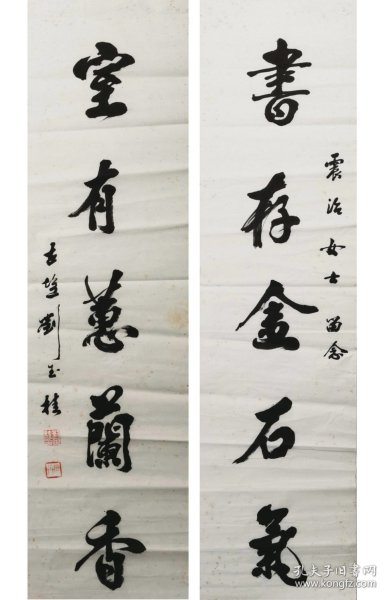 書存金石氣
震治女士留念
室有蕙蘭香
劉玉桂
孔夫子旧书网